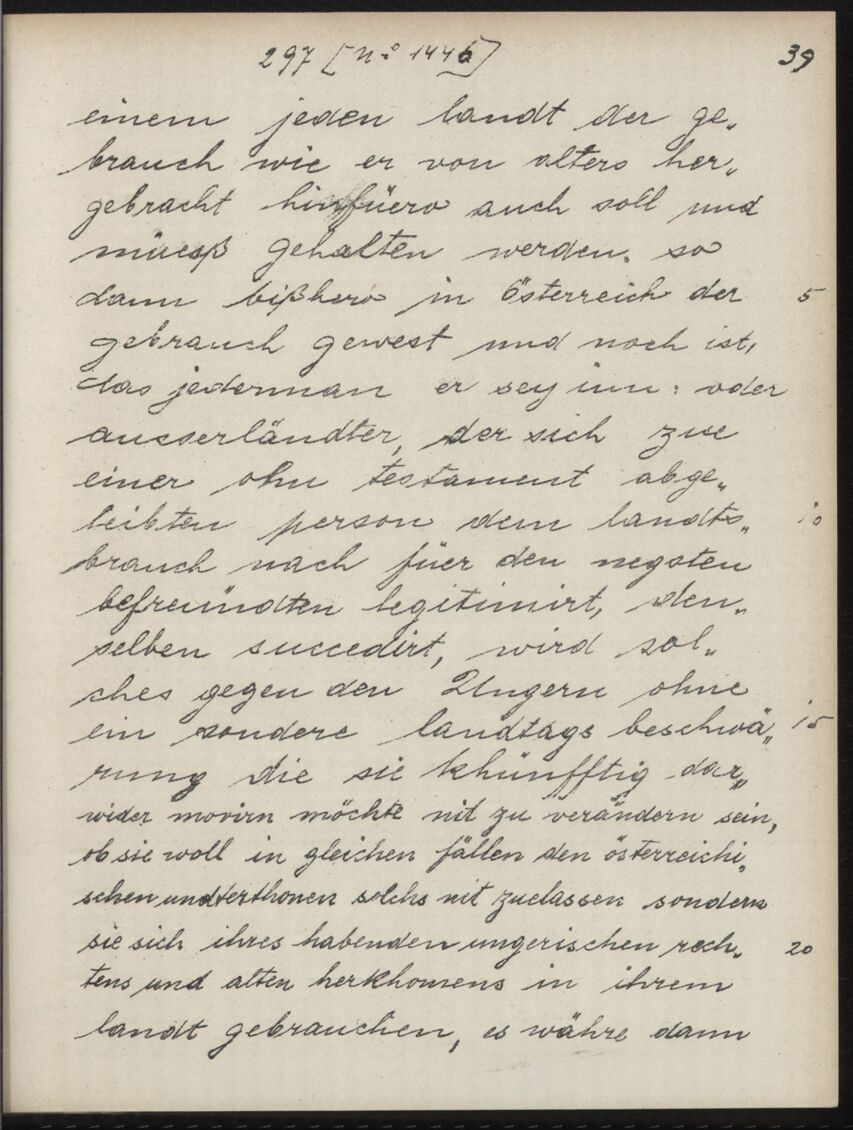 297 [N:o 1446] 39
einem jeden landt der ge„
brauch wie er von alters her„
gebracht hinfüero auch soll und
müesß gehalten werden. so
dann bißhero in Österreich der 5
gebrauch gewest und noch ist,
das jederman er sey inn: oder
ausserländter, der sich zue
einer ohn testament abge„
leibten person dem landts„ 10
brauch nach füer den negsten
befreündten legitimirt, den„
selben succedirt, wird sol„
ches gegen den Ungern ohne
ein sondere landtags beschwä„ 15
rung die sie khünfftig dar„
wider movirn möchte nit zu verändern sein,
ob sie woll in gleichen fällen den österreichi„
schen undterthonen solchs nit zuelassen sondern
sie sich ihres habenden ungerischen rech„ 20
tens und alten herkhomens in ihrem
landt gebrauchen, es währe dann